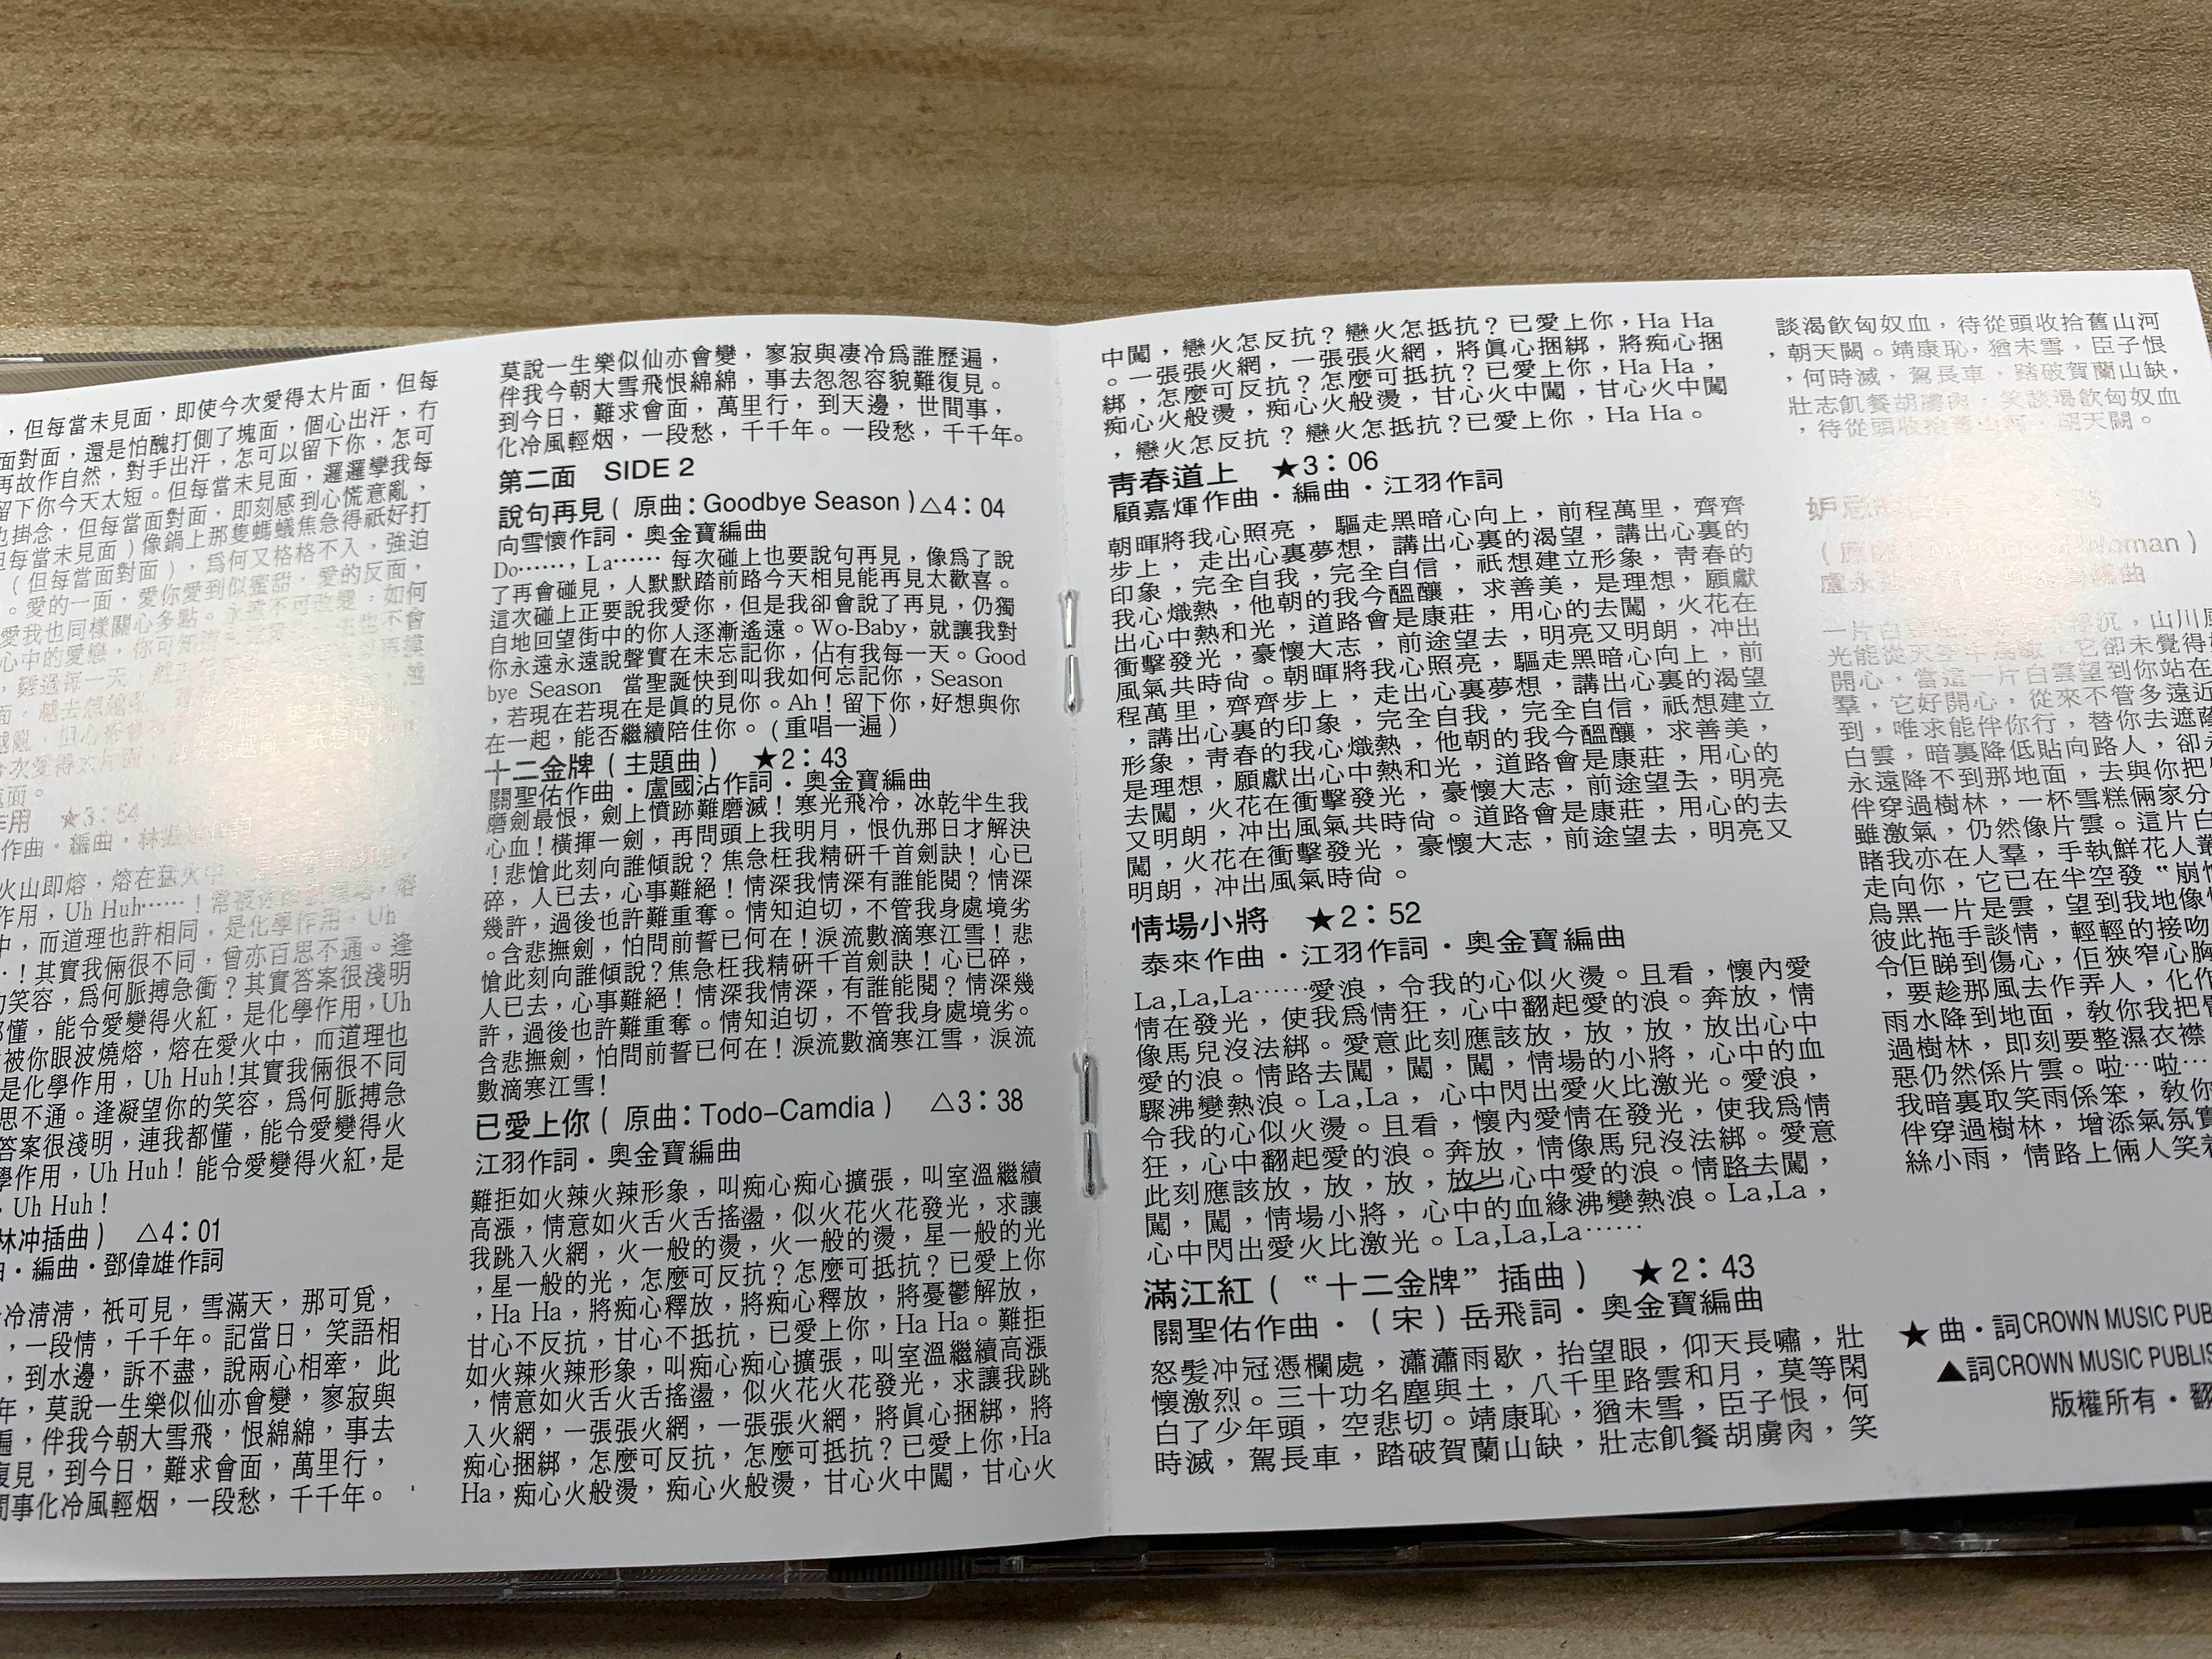 ，但每當未見面，即使今次愛得太片面，但每
面對面，還是怕醜打側了塊面，個心出汗，冇
再故作自然，對手出汗，怎可以留下你，怎可
留下你今天太短。但每當未見面，邏邏攣我每
也掛念，但每當面對面，即刻感到心慌意亂，
但每當未見面）像鍋上那隻螞蟻焦急得祇好打
（但每當面對面），爲何又格格不入，強迫
。愛的一面，愛你愛到似蜜甜，愛的反面，
愛我也同樣關心多點。永遠不可改變，如何
心中的愛戀，你可知
，難過每一天，
★3：54
作曲・編曲，林
火山即熔，熔在猛火中
作用，Uh Huh……！
中，而道理也許相同，是化學作用，Uh
…！其實我倆很不同，曾亦百思不通。逢
的笑容，爲何脈搏急衝？其實答案很淺明
都懂，能令愛變得火紅，是化學作用，Uh
被你眼波燒熔，熔在愛火中，而道理也
是化學作用，Uh Huh！其實我倆很不同
思不通。逢凝望你的笑容，爲何脈搏急
答案很淺明，連我都懂，能令愛變得火
學作用，Uh Huh！能令愛變得火紅，是
，Uh Huh！
林冲插曲） △4：01
曲・編曲・鄧偉雄作詞
冷清清，祇可見，雪滿天，那可覓，
，一段情，千千年。記當日，笑語相
，到水邊，訴不盡，說兩心相牽，此
年，莫說一生樂似仙亦會變，寥寂與
遍，伴我今朝大雪飛，恨綿綿，事去
復見，到今日，難求會面，萬里行，
間事化冷風輕烟，一段愁，千千年。
莫說一生樂似仙亦會變，寥寂與凄冷爲誰歷遍，
伴我今朝大雪飛恨綿綿，事去忽忽容貌難復見。
到今日，難求會面，萬里行，到天邊，世間事，
化冷風輕烟，一段愁，千千年。一段愁，千千年。
第二面 SIDE 2
說句再見（原曲：Goodbye Season）△4：04
向雪懷作詞・奧金寶編曲
Do……，La…… 每次碰上也要說句再見，像爲了說
了再會碰見，人默默踏前路今天相見能再見太歡喜。
這次碰上正要說我愛你，但是我卻會說了再見，仍獨
自地回望街中的你人逐漸遙遠。Wo-Baby，就讓我對
你永遠永遠說聲實在未忘記你，佔有我每一天。Good
bye Season 當聖誕快到叫我如何忘記你，Season
，若現在若現在是眞的見你。Ah！留下你，好想與你
在一起，能否繼續陪住你。（重唱一遍）
十二金牌（主題曲） ★2：43
關聖佑作曲・盧國沾作詞・奧金寶編曲
磨劍最恨，劍上憤跡難磨滅！寒光飛冷，冰乾半生我
心血！橫揮一劍，再問頭上我明月，恨仇那日才解決
！悲愴此刻向誰傾說？焦急枉我精研千首劍訣！心已
碎，人已去，心事難絕！情深我情深有誰能閱？情深
幾許，過後也許難重奪。情知迫切，不管我身處境劣
。含悲撫劍，怕問前誓已何在！淚流數滴寒江雪！悲
愴此刻向誰傾說？焦急枉我精研千首劍訣！心已碎，
人已去，心事難絕！情深我情深，有誰能閱？情深幾
許，過後也許難重奪。情知迫切，不管我身處境劣。
含悲撫劍，怕問前誓已何在！淚流數滴寒江雪，淚流
數滴寒江雪！
已愛上你（原曲：Todo–Camdia） △3：38
江羽作詞・奧金寶編曲
難拒如火辣火辣形象，叫痴心痴心擴張，叫室溫繼續
高漲，情意如火舌火舌搖盪，似火花火花發光，求讓
我跳入火網，火一般的燙，火一般的燙，星一般的光
，星一般的光，怎麼可反抗？怎麼可抵抗？已愛上你
，Ha Ha，將痴心釋放，將痴心釋放，將憂鬱解放，
甘心不反抗，甘心不抵抗，已愛上你，Ha Ha。難拒
如火辣火辣形象，叫痴心痴心擴張，叫室溫繼續高漲
，情意如火舌火舌搖盪，似火花火花發光，求讓我跳
入火網，一張張火網，一張張火網，將眞心捆綁，將
痴心捆綁，怎麼可反抗，怎麼可抵抗？已愛上你，Ha
Ha，痴心火般燙，痴心火般燙，甘心火中闖，甘心火
中闖，戀火怎反抗？戀火怎抵抗？已愛上你，Ha Ha
。一張張火網，一張張火網，將眞心捆綁，將痴心捆
綁，怎麼可反抗？怎麼可抵抗？已愛上你，Ha Ha，
痴心火般燙，痴心火般燙，甘心火中闖，甘心火中闖
，戀火怎反抗？戀火怎抵抗？已愛上你，Ha Ha。
青春道上 ★3：06
顧嘉煇作曲・編曲・江羽作詞
朝暉將我心照亮，驅走黑暗心向上，前程萬里，齊齊
步上，走出心裏夢想，講出心裏的渴望，講出心裏的
印象，完全自我，完全自信，祇想建立形象，青春的
我心熾熱，他朝的我今醞釀，求善美，是理想，願獻
出心中熱和光，道路會是康莊，用心的去闖，火花在
衝擊發光，豪懷大志，前途望去，明亮又明朗，冲出
風氣共時尙。朝暉將我心照亮，驅走黑暗心向上，前
程萬里，齊齊步上，走出心裏夢想，講出心裏的渴望
，講出心裏的印象，完全自我，完全自信，祇想建立
形象，青春的我心熾熱，他朝的我今醞釀，求善美，
是理想，願獻出心中熱和光，道路會是康莊，用心的
去闖，火花在衝擊發光，豪懷大志，前途望去，明亮
又明朗，冲出風氣共時尙。道路會是康莊，用心的去
闖，火花在衝擊發光，豪懷大志，前途望去，明亮又
明朗，冲出風氣時尙。
情場小將 ★2：52
泰來作曲・江羽作詞・奧金寶編曲
La,La,La……愛浪，令我的心似火燙。且看，懷內愛
情在發光，使我爲情狂，心中翻起愛的浪。奔放，情
像馬兒沒法綁。愛意此刻應該放，放，放，放出心中
愛的浪。情路去闖，闖，闖，情場的小將，心中的血
驟沸變熱浪。La,La，心中閃出愛火比激光。愛浪，
令我的心似火燙。且看，懷內愛情在發光，使我爲情
狂，心中翻起愛的浪。奔放，情像馬兒沒法綁。愛意
此刻應該放，放，放，放出心中愛的浪。情路去闖，
闖，闖，情場小將，心中的血緣沸變熱浪。La,La，
心中閃出愛火比激光。La,La,La……
滿江紅（“十二金牌”插曲） ★2：43
關聖佑作曲・（宋）岳飛詞・奧金寶編曲
怒髮冲冠憑欄處，瀟瀟雨歇，抬望眼，仰天長嘯，壯
懷激烈。三十功名塵與土，八千里路雲和月，莫等閑
白了少年頭，空悲切。靖康恥，猶未雪，臣子恨，何
時滅，駕長車，踏破賀蘭山缺，壯志飢餐胡虜肉，笑
談渴飲匈奴血，待從頭收拾舊山河
，朝天闕。靖康恥，猶未雪，臣子恨
，何時滅，駕長車，踏破賀蘭山缺，
壯志飢餐胡虜肉，笑談渴飲匈奴血
，待從頭收拾舊山河，朝天闕。
妒忌
（原曲 Woman）
編曲
一片白 沉，山川
光能從天空中 它卻未覺得
開心，當這一片白雲望到你站在
羣，它好開心，從來不管多遠近
到，唯求能伴你行，替你去遮蔭
白雲，暗裏降低貼向路人，卻
永遠降不到那地面，去與你把
伴穿過樹林，一杯雪糕倆家分
雖激氣，仍然像片雲。這片白
睹我亦在人羣，手執鮮花人叢
走向你，它已在半空發“崩
烏黑一片是雲，望到我地像
彼此拖手談情，輕輕的接吻
令佢睇到傷心，佢狹窄心胸
，要趁那風去作弄人，化作
雨水降到地面，教你我把
過樹林，即刻要整濕衣襟
惡仍然係片雲。啦…啦…
我暗裏取笑雨係笨，教你
伴穿過樹林，增添氣氛
絲小雨，情路上倆人笑
★ 曲・詞CROWN MUSIC PUB
▲詞CROWN MUSIC PUBLIS
版權所有・翻